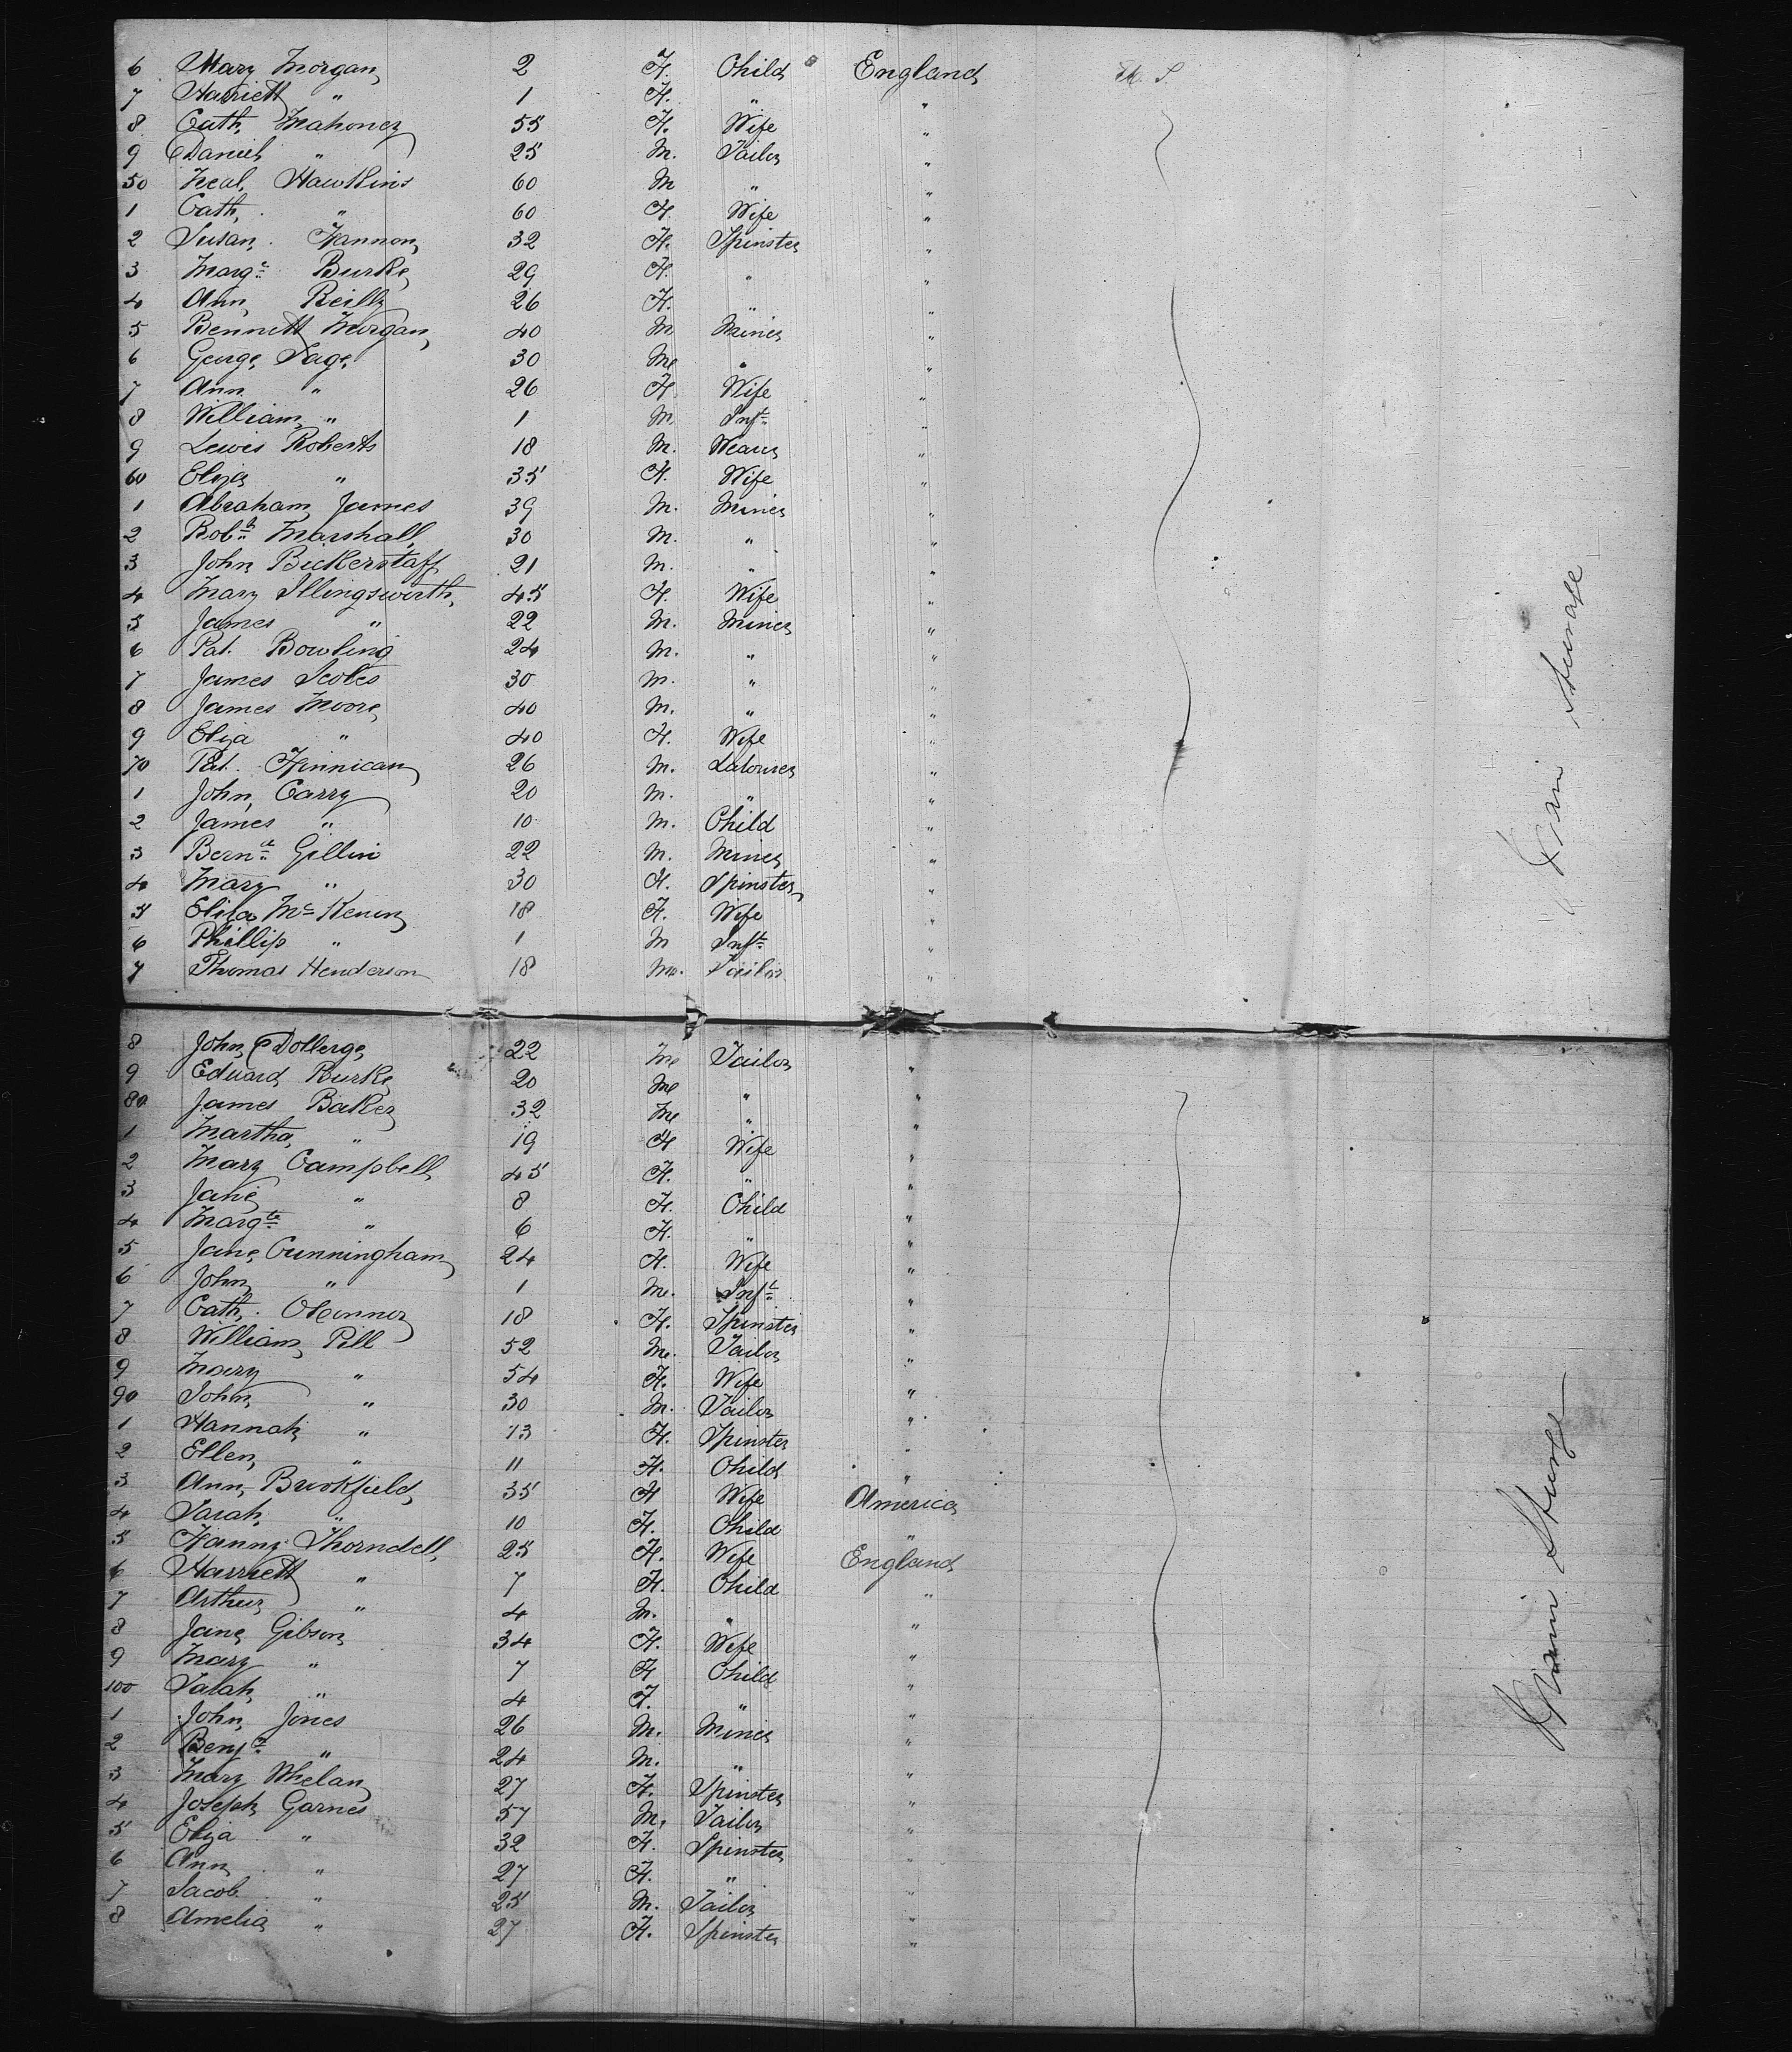 6 Mary Morgan 2 F. Child England U. S.
7 Harriett " 1 F. " "
8 Cath. Mahoney 55 F. Wife "
9 Daniel " 25 M. Tailor "
50 Neal Hawkins 60 M " "
1 Cath. " 60 F. Wife "
2 Susan Hannon 32 F. Spinster "
3 Margt Burke 29 F. " "
4 Ann Reilly 26 F. " "
5 Bennett Morgan 40 M Miner "
6 George Page 30 M " "
7 Ann " 26 F Wife "
8 William " 1 M Inft "
9 Lewis Roberts 18 M. Weaver "
60 Eliza " 35 F. Wife "
1 Abraham James 39 M. Miner "
2 Robt Marshall 30 M. " "
3 John Bickerstaff 21 M. " "
4 Mary Illingsworth 45 F. Wife "
5 James " 22 M. Miner "
6 Pat. Bowling 24 M. " "
7 James Scoles 30 M. " "
8 James Moore 40 M. " "
9 Eliza " 40 F. Wife "
70 Pat. Finnican 26 M. Labourer "
1 John Carry 20 M. " "
2 James " 10 M. Child "
3 Bernd Gillin 22 M. Miner "
4 Mary " 30 F. Spinster "
5 Eliza Mc Keninz 18 F. Wife "
6 Phillip " 1 M Inft "
7 Thomas Henderson 18 M. Tailor "
8 John Dollerge 22 M Tailor "
9 Edward Burke 20 M " "
80 James Baker 32 M " "
1 Martha " 19 F Wife "
2 Mary Campbell 45 F. " "
3 Jane " 8 F. Child "
4 Margte " 6 F. " "
5 Jane Cunningham 24 F. Wife "
6 John " 1 M. Inft "
7 Cath. OConnor 18 F. Spinster "
8 William Pill 52 M. Tailor "
9 Mary " 54 F. Wife "
90 John " 30 M. Tailor "
1 Hannah " 13 F. Spinster "
2 Ellen " 11 F. Child "
3 Ann Brookfield 35 F Wife America
4 Sarah " 10 F. Child "
5 Fanny Thorndell 25 F. Wife England
6 Harriett " 7 F. Child "
7 Arthur " 4 M. " "
8 Jane Gibson 34 F. Wife "
9 Mary " 7 F Child "
100 Sarah " 4 F. " "
1 John Jones 26 M. Miner "
2 Benjn " 24 M. " "
3 Mary Whelan 27 F. Spinster "
4 Joseph Garnes 57 M. Tailor "
5 Eliza " 32 F. Spinster "
6 Ann " 27 F. " "
7 Jacob " 25 M. Tailor "
8 Amelia " 27 F. Spinster "
Main Steerage
Main Steerage